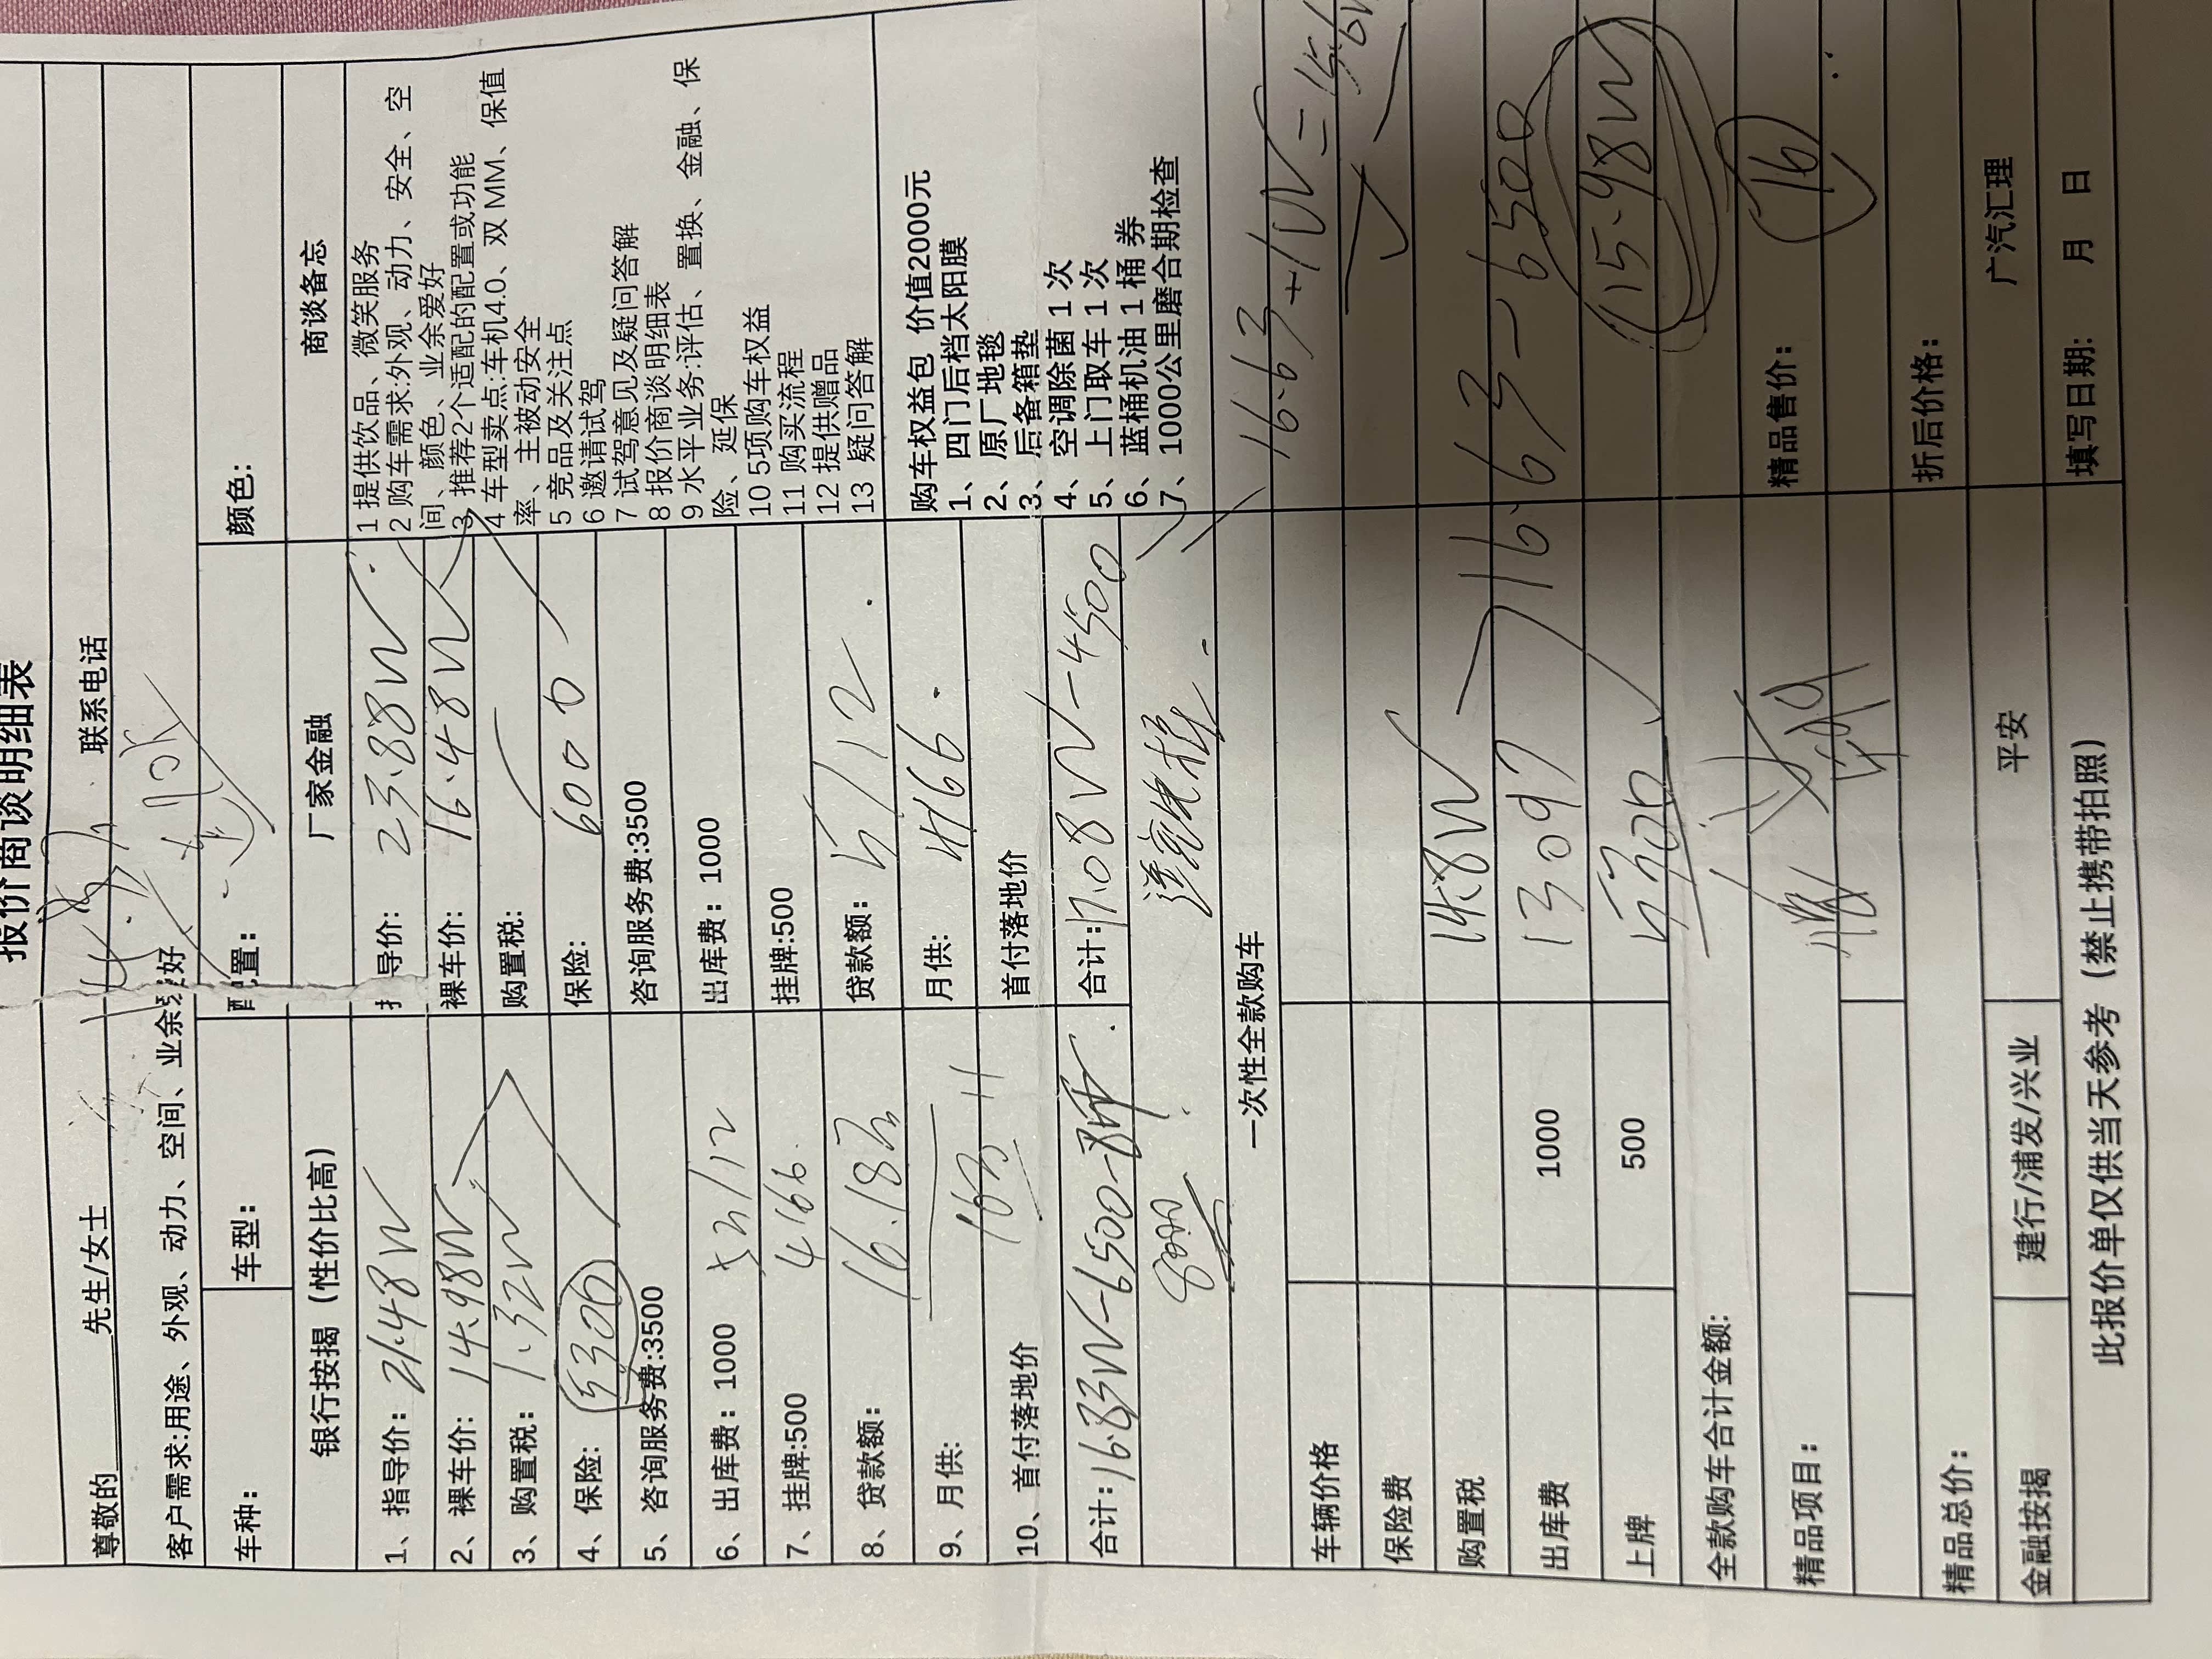 报价商谈明细表
尊敬的 先生/女士 联系电话
客户需求:用途、外观、动力、空间、业余爱好
车种： 车型： 配置： 颜色：
银行按揭（性价比高） 厂家金融 商谈备忘
1、指导价：21.48W
2、裸车价：14.98W
3、购置税：1.32W
4、保险：5306
5、咨询服务费:3500
6、出库费：1000 5万/12
7、挂牌:500 4166.
8、贷款额： 16.18万
9、月供:
10、首付落地价
合计：16.83W-6500
8000
指导价：23.88W
裸车价：16.48W
购置税：
保险：6000
咨询服务费:3500
出库费：1000
挂牌:500
贷款额：5/12
月供：4166.
首付落地价
合计：17.08W-4500
1 提供饮品、微笑服务
2 购车需求:外观、动力、安全、空
间、颜色、业余爱好
3 推荐2个适配的配置或功能
4 车型卖点:车机4.0、双 MM、保值
率、主被动安全
5 竞品及关注点
6 邀请试驾
7 试驾意见及疑问答解
8 报价商谈明细表
9 水平业务:评估、置换、金融、保
险、延保
10 5项购车权益
11 购买流程
12 提供赠品
13 疑问答解
购车权益包 价值2000元
1、四门后档太阳膜
2、原厂地毯
3、后备箱垫
4、空调除菌 1 次
5、上门取车 1 次
6、蓝桶机油 1 桶 券
7、1000公里磨合期检查
一次性全款购车
车辆价格
保险费
购置税 14.8W
出库费 1000 13097 16.63-6500
上牌 500 5300 15.98W
全款购车合计金额:
精品项目： 精品售价： 16
精品总价： 折后价格：
金融按揭 建行/浦发/兴业 平安 广汽汇理
此报价单仅供当天参考（禁止携带拍照） 填写日期: 月 日